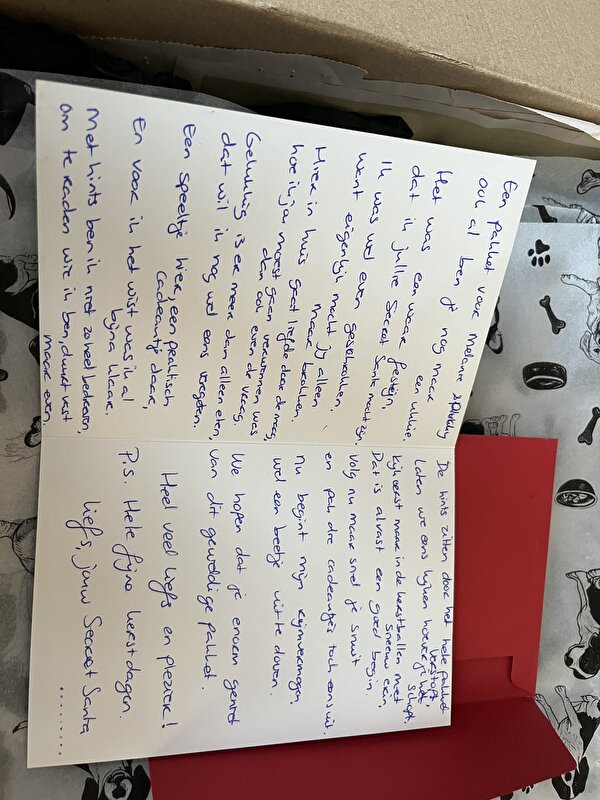 Een pakket voor Melanie & Plucky
ook al ben je nog maar
een ukkie.
Het was een waar festijn,
dat ik jullie Secret Santa mocht zijn.
Ik was wel even geschrokken,
want eigenlijk mocht jij alleen
maar brokken.
Hier in huis gaat liefde door de maag,
hoe ik jou moest gaan verwennen was
dan ook even de vraag.
Gelukkig is er meer dan alleen eten,
dat wil ik nog wel eens vergeten.
Een speeltje hier, een praktisch
cadeautje daar,
En voor ik het wist was ik al
bijna klaar.
Met hints ben ik niet zo heel bedreven,
om te raden wie ik ben, duurt vast
maar even.
De hints zitten door het hele pakket
verstopt
Laten we eens kijken hoever je het
schopt.
Kijk eerst maar in de kerstballen met
sneeuw erin
Dat is alvast een goed begin.
Volg nu maar snel je snuit
en pak die cadeautjes toch eens uit.
Nu begint mijn rijmvermogen,
wel een beetje uit te doven.
We hopen dat je enorm geniet
van dit geweldige pakket.
Heel veel liefs en plezier!
P.s. Hele fijne kerstdagen.
Liefs, jouw Secret Santa
.........